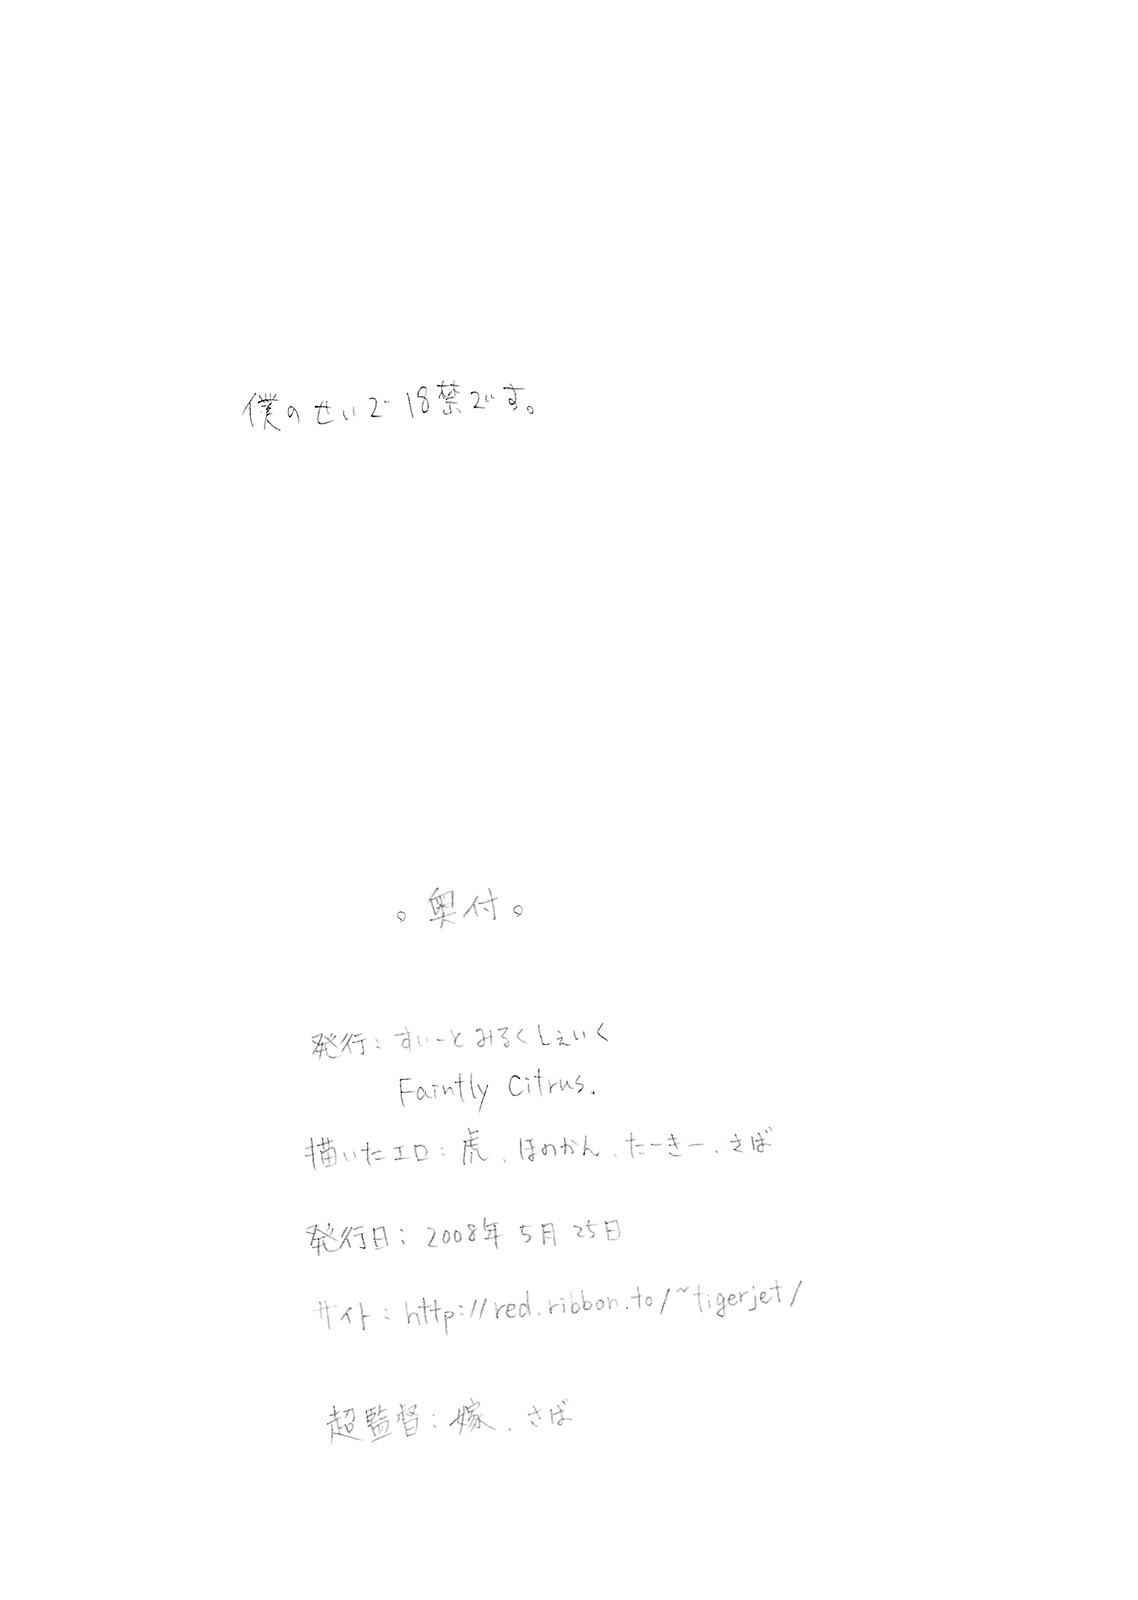 僕のせいで18禁です。
。奥付。
発行：すいーとみるくしぇいく
Faintly Citrus.
描いたエロ：虎、ほのかん、たーきー、さば
発行日：2008年5月25日
サイト：http://red.ribbon.to/~tigerjet/
超監督：嫁、さば